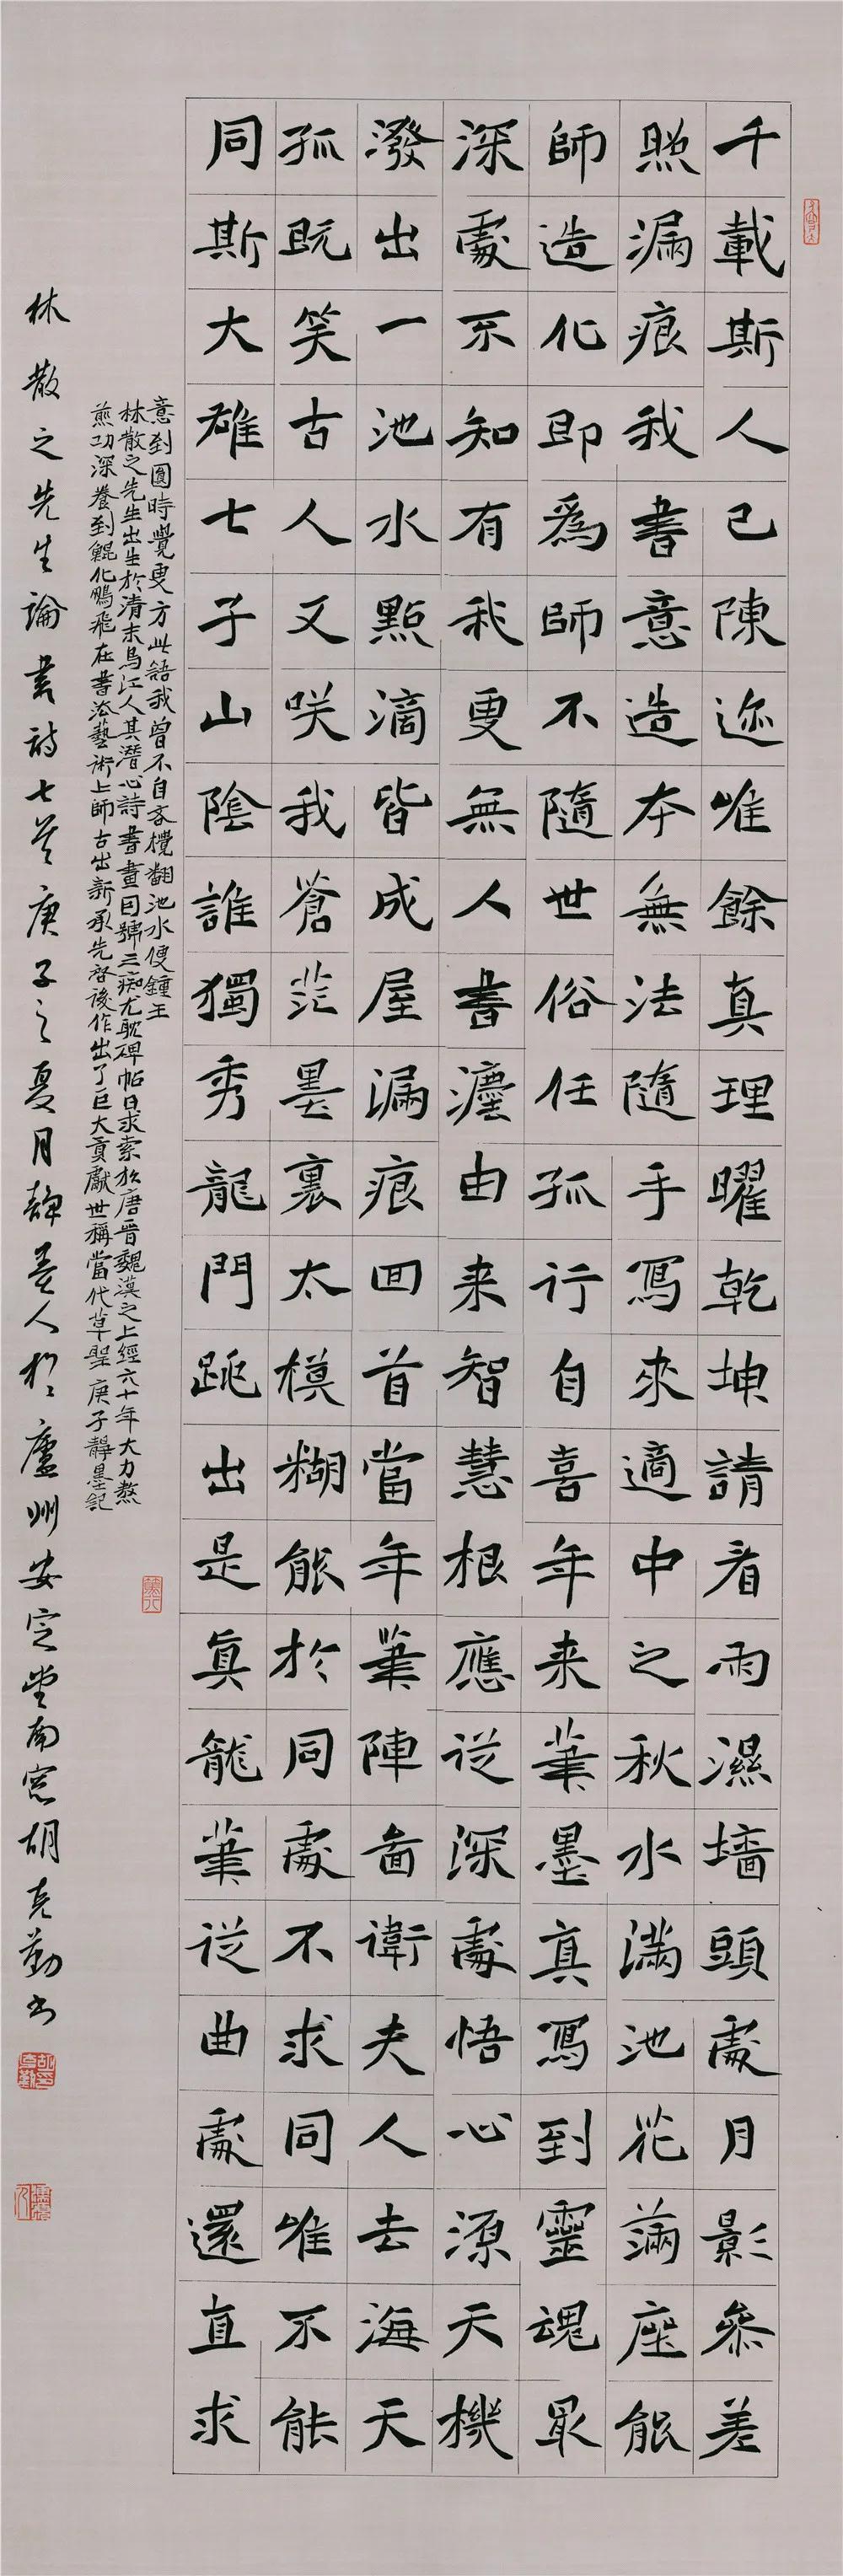 千載斯人已陳迹唯餘真理曜乾坤請看雨濕墻頭處月影參差
照漏痕我書意造本無法隨手寫來適中之秋水滿池花滿座能
師造化即爲師不隨世俗任孤行自喜年来筆墨真寫到靈魂最
深處不知有我更無人書瀍由来智慧根應從深處悟心源天機
潑出一池水點滴皆成屋漏痕回首當年筆陣啚衛夫人去海天
孤既笑古人又咲我蒼茫墨裏太模糊能於同處不求同唯不能
同斯大雄七子山陰誰獨秀龍門跳出是真龍筆從曲處還直求
意到圓時覺更方此語我曾不自吝攪翻池水便鍾王
林散之先生出生於清末烏江人其潛心詩書畫因號三痴尤耽碑帖日求索於唐晋魏漢之上經六十年大力熬
煎功深養到鯤化鵬飛在書法藝術上師古出新承先啓後作出了巨大貢獻世稱當代草聖庚子靜墨記
林散之先生論書詩七首庚子之夏月靜墨人於廬州安定堂南窓胡克勤書